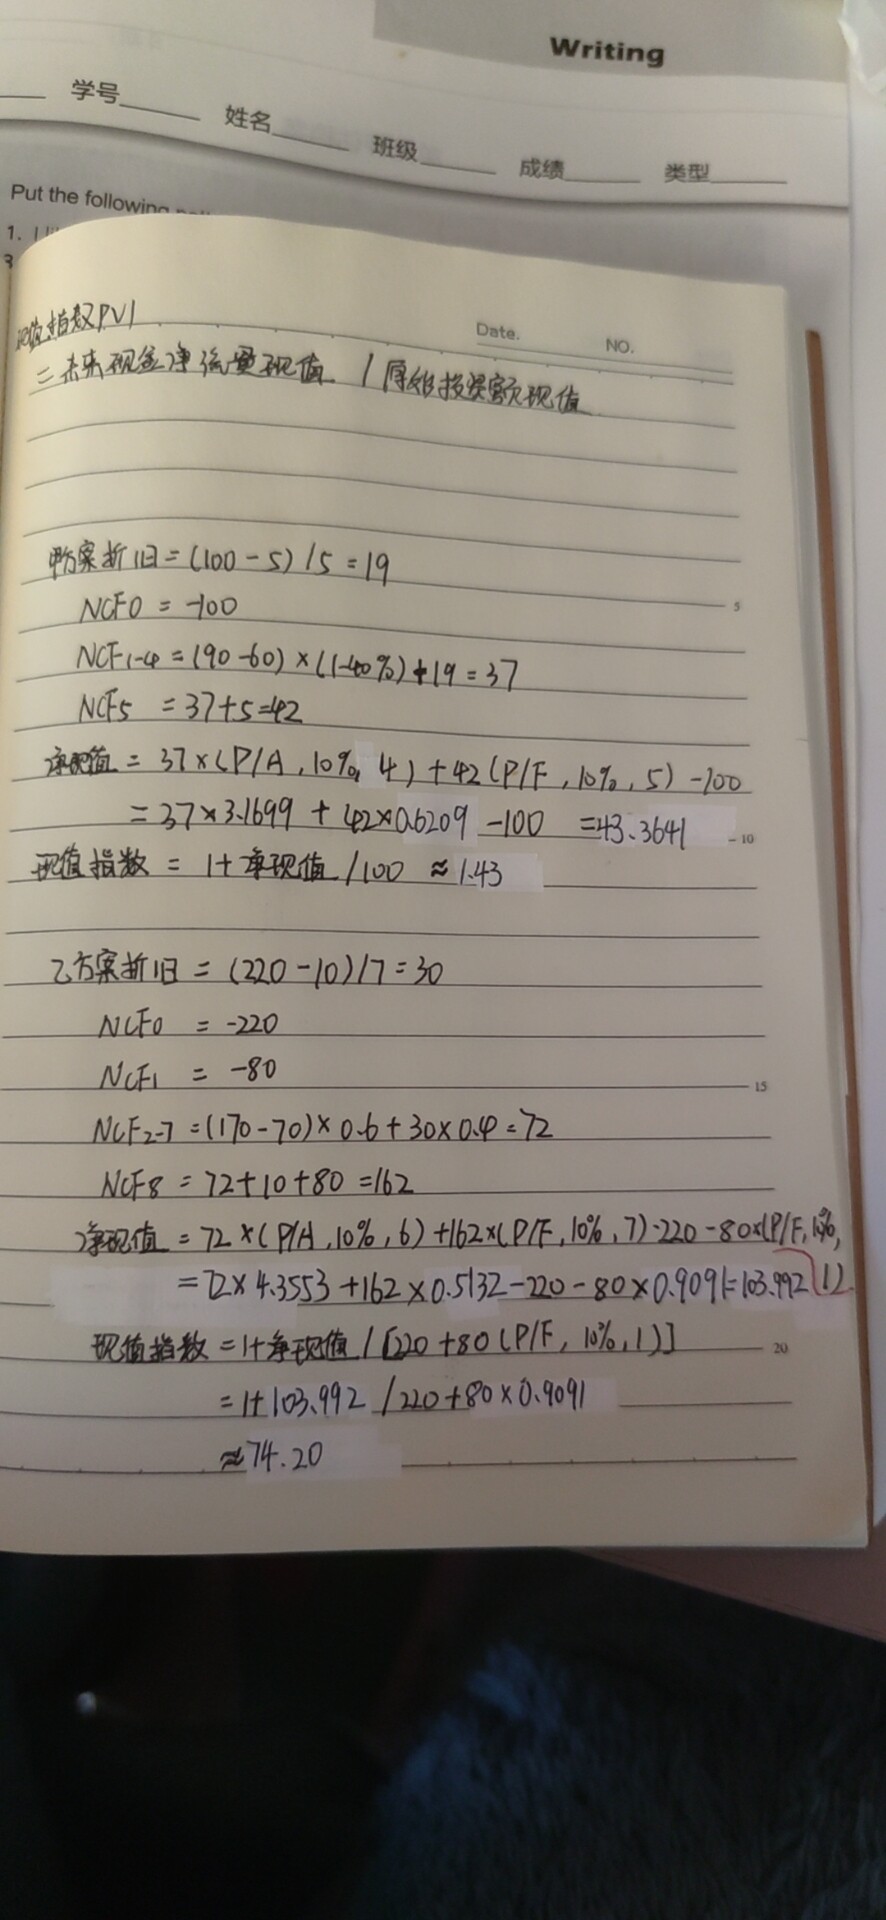 Writing
学号 姓名 班级 成绩 类型
Put the following
1. I
3
现值指数PVI
Date. NO.
=未来现金净流量现值 / 原始投资额现值
甲方案折旧=(100-5)/5=19
5
NCF0 = -100
NCF1-4 = (90-60)×(1-40%)+19=37
NCF5 = 37+5=42
净现值 = 37×(P/A,10%,4)+42(P/F,10%,5)-100
= 37×3.1699 + 42×0.6209 -100 =43.3641
10
现值指数 = 1+净现值/100 ≈1.43
乙方案折旧 = (220-10)/7=30
NCF0 = -220
NCF1 = -80
15
NCF2-7 =(170-70)×0.6+30×0.4=72
NCF8 = 72+10+80 =162
净现值 = 72×(P/A,10%,6)+162×(P/F,10%,7)-220-80×(P/F,10%,
=72×4.3553+162×0.5132-220-80×0.9091=103.992 1)
现值指数=1+净现值/[220+80(P/F,10%,1)]
20
=1+103.992/220+80×0.9091
≈74.20